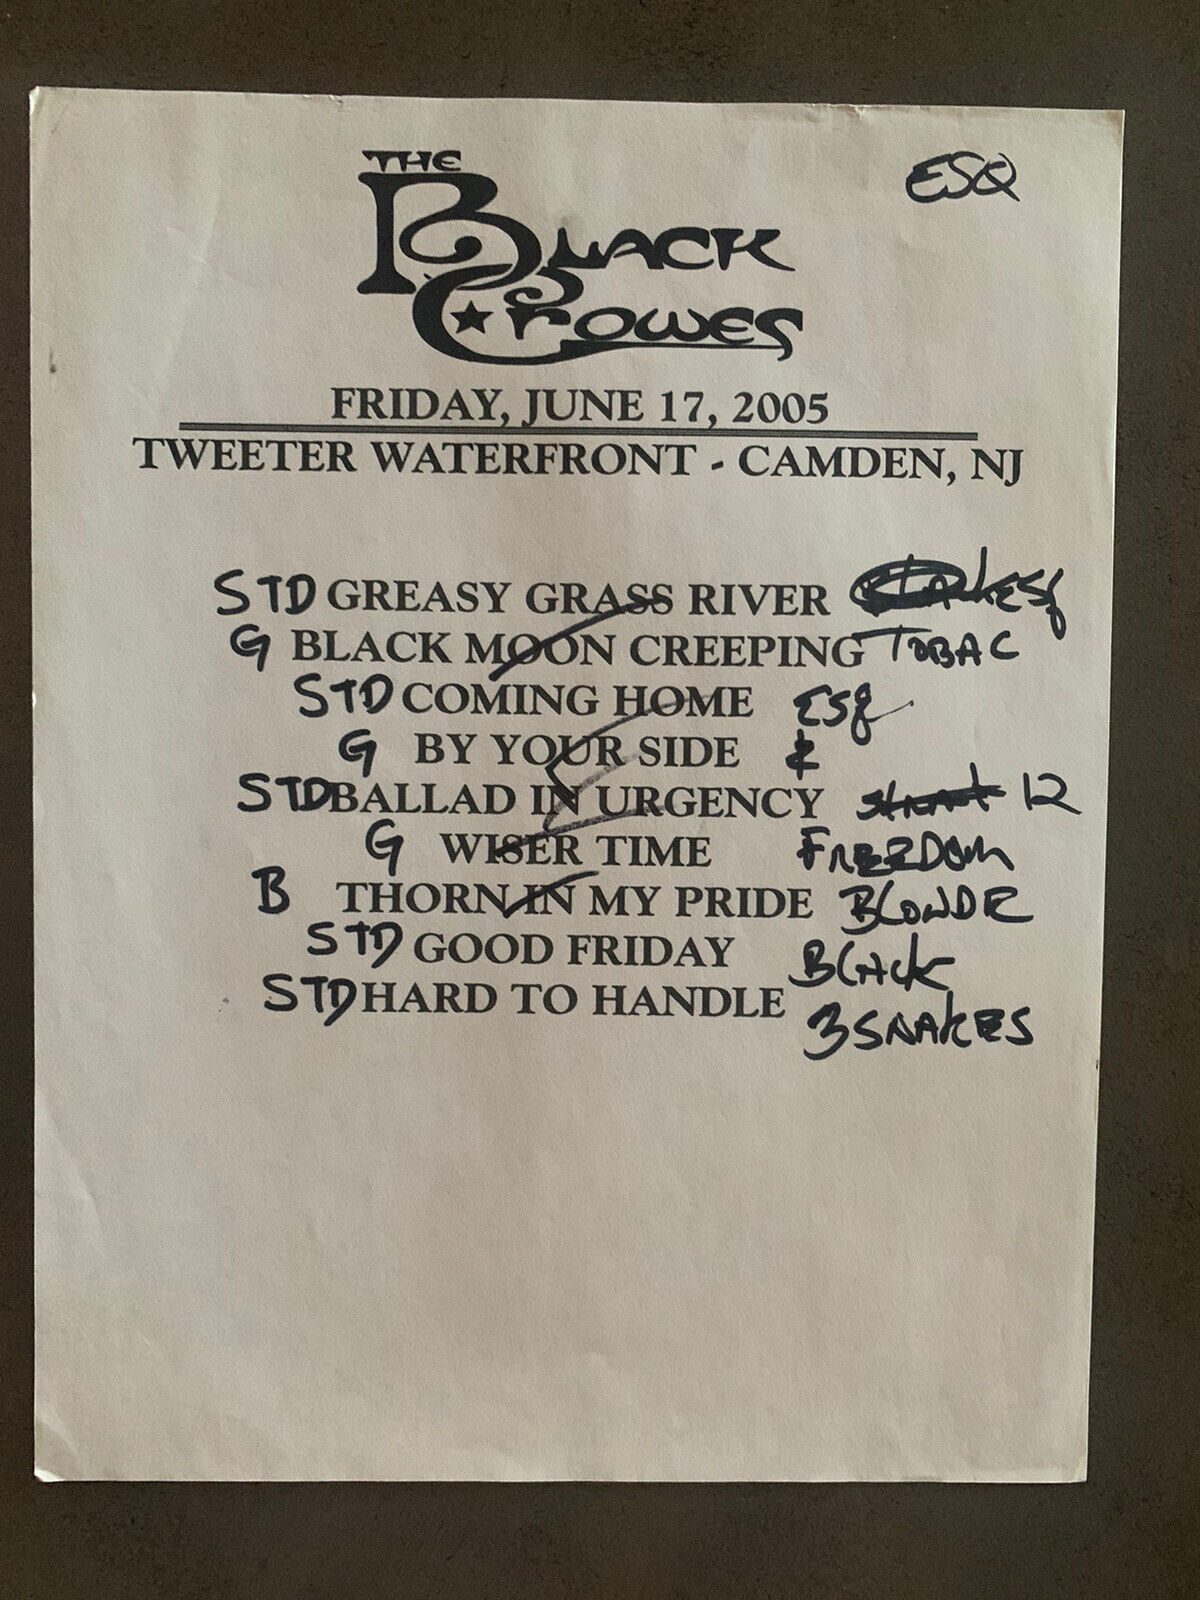 THE BLACK CROWES
ESQ
FRIDAY, JUNE 17, 2005
TWEETER WATERFRONT - CAMDEN, NJ
STD GREASY GRASS RIVER ESQ
G BLACK MOON CREEPING TOBAC
STD COMING HOME ESQ
G BY YOUR SIDE
STD BALLAD IN URGENCY 12
G WISER TIME FREEDOM
B THORN IN MY PRIDE BLONDE
STD GOOD FRIDAY BLACK
STD HARD TO HANDLE 3 SNAKES